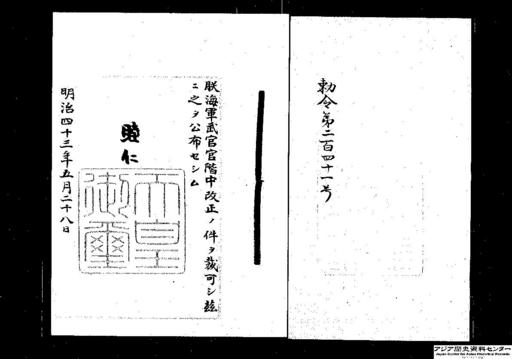 勅令第二百四十一号
朕海軍武官官階中改正ノ件ヲ裁可シ茲
ニ之ヲ公布セシム
睦仁
天皇
御璽
明治四十三年五月二十八日
アジア歴史資料センター
Japan Center for Asian Historical Records